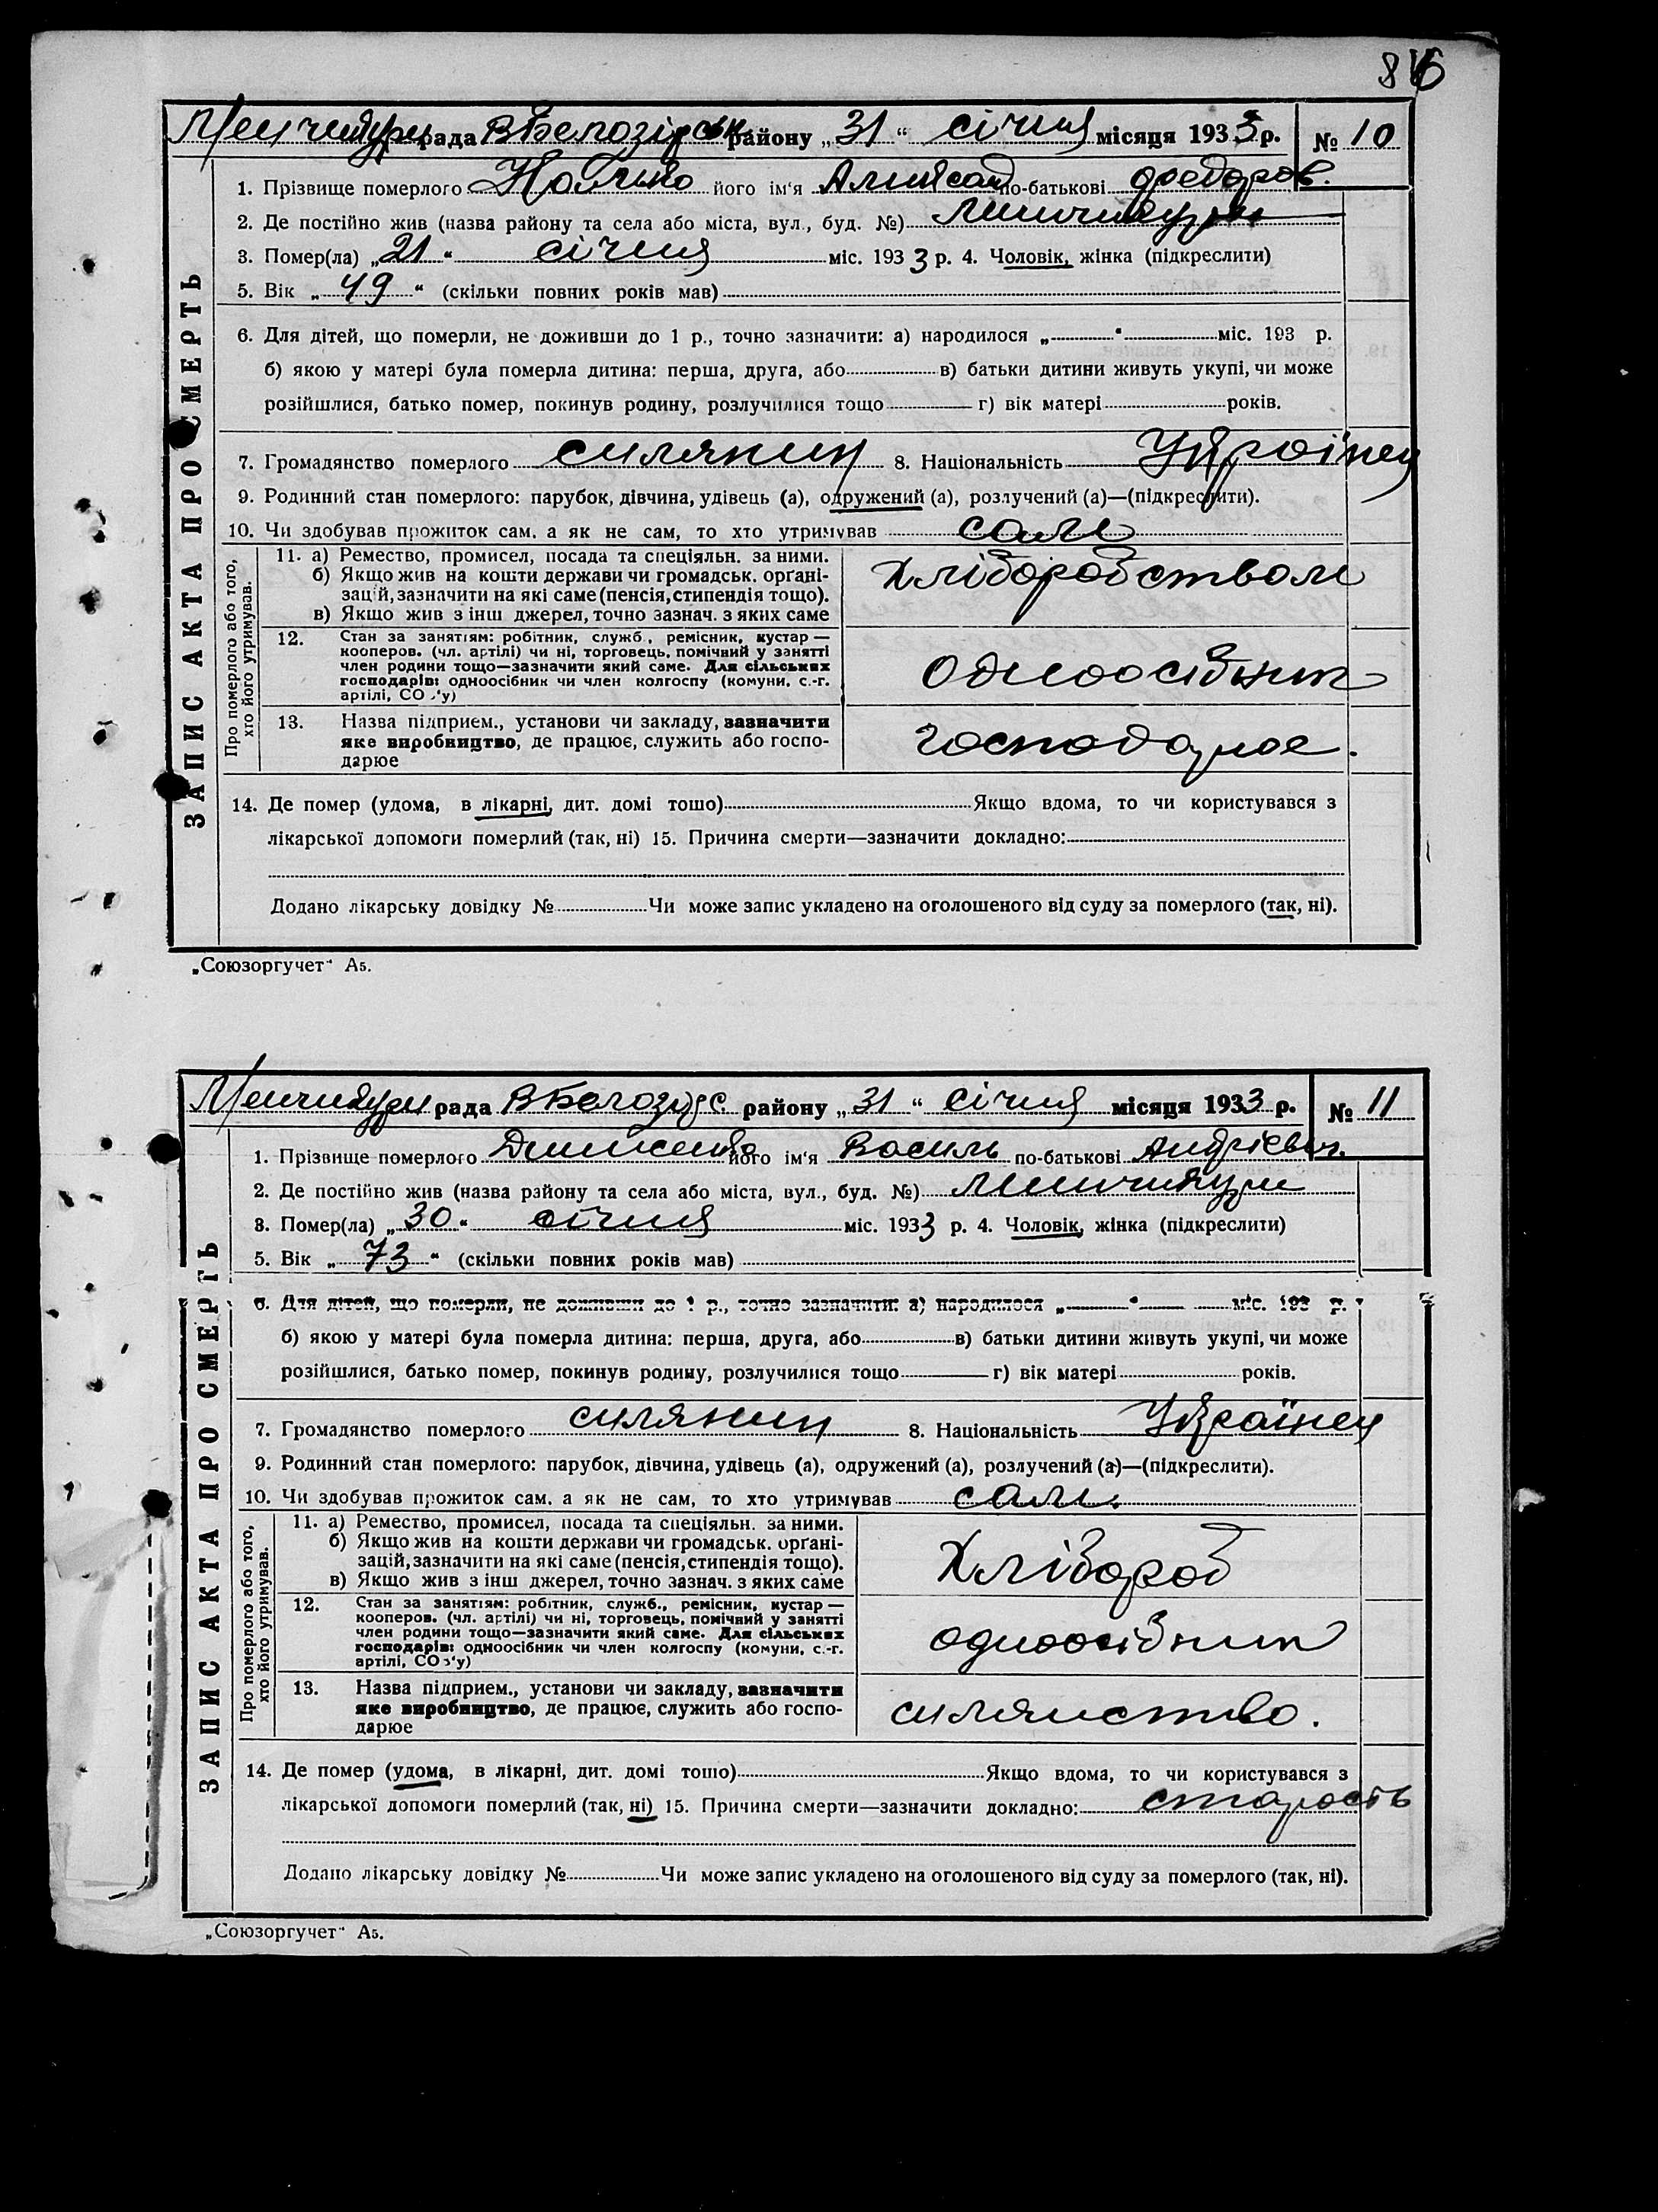 86
Менчикури рада ВБелозірськ району „31“ січня місяця 1933 р. № 10
1. Прізвище померлого його ім'я Алексад по-батькові Федоров.
2. Де постійно жив (назва району та села або міста, вул., буд. №) Менчикури
3. Помер(ла) „21“ січня міс. 1933 р. 4. Чоловік, жінка (підкреслити)
5. Вік „49“ (скільки повних років мав)
6. Для дітей, що померли, не доживши до 1 р., точно зазначити: а) народилося „ “ міс. 193 р.
б) якою у матері була померла дитина: перша, друга, або в) батьки дитини живуть укупі, чи може
розійшлися, батько помер, покинув родину, розлучилися тощо г) вік матері років.
7. Громадянство померлого силянин 8. Національність Українец
9. Родинний стан померлого: парубок, дівчина, удівець (а), одружений (а), розлучений (а)—(підкреслити).
10. Чи здобував прожиток сам. а як не сам, то хто утримував сам
Про померлого або того, хто його утримував.
11. а) Ремество, промисел, посада та спеціяльн. за ними.
б) Якщо жив на кошти держави чи громадськ. орґані-
зацій, зазначити на які саме (пенсія, стипендія тощо).
в) Якщо жив з інш джерел, точно зазнач. з яких саме
Хліборобством
12. Стан за заняттям: робітник, служб., ремісник, кустар —
кооперов. (чл. артілі) чи ні, торговець, помічний у занятті
член родини тощо—зазначити який саме. Для сільських
господарів: одноосібник чи член колгоспу (комуни, с.-г.
артілі, СОз'у)
одноосібник
13. Назва підприєм., установи чи закладу, зазначити
яке виробництво, де працює, служить або госпо-
дарює
господарює.
14. Де помер (удома, в лікарні, дит. домі тощо) Якщо вдома, то чи користувався з
лікарської допомоги померлий (так, ні) 15. Причина смерти—зазначити докладно:
Додано лікарську довідку № Чи може запис укладено на оголошеного від суду за померлого (так, ні).
ЗАПИС АКТА ПРО СМЕРТЬ
„Союзоргучет“ А5.
Менчикури рада ВБелозірс. району „31“ січня місяця 1933 р. № 11
1. Прізвище померлого його ім'я Василь по-батькові Андрієвич.
2. Де постійно жив (назва району та села або міста, вул., буд. №) Менчикури
3. Помер(ла) „30“ січня міс. 1933 р. 4. Чоловік, жінка (підкреслити)
5. Вік „73“ (скільки повних років мав)
6. Для дітей, що померли, не доживши до 1 р., точно зазначити: а) народилося „ “ міс. 193 р.
б) якою у матері була померла дитина: перша, друга, або в) батьки дитини живуть укупі, чи може
розійшлися, батько помер, покинув родину, розлучилися тощо г) вік матері років.
7. Громадянство померлого силянин 8. Національність Українец
9. Родинний стан померлого: парубок, дівчина, удівець (а), одружений (а), розлучений (а)—(підкреслити).
10. Чи здобував прожиток сам. а як не сам, то хто утримував сам.
Про померлого або того, хто його утримував.
11. а) Ремество, промисел, посада та спеціяльн. за ними.
б) Якщо жив на кошти держави чи громадськ. орґані-
зацій, зазначити на які саме (пенсія, стипендія тощо).
в) Якщо жив з інш джерел, точно зазнач. з яких саме
Хлібороб
12. Стан за заняттям: робітник, служб., ремісник, кустар —
кооперов. (чл. артілі) чи ні, торговець, помічний у занятті
член родини тощо—зазначити який саме. Для сільських
господарів: одноосібник чи член колгоспу (комуни, с.-г.
артілі, СОз'у)
одноосібник
13. Назва підприєм., установи чи закладу, зазначити
яке виробництво, де працює, служить або госпо-
дарює
силянство.
14. Де помер (удома, в лікарні, дит. домі тошо) Якщо вдома, то чи користувався з
лікарської допомоги померлий (так, ні) 15. Причина смерти—зазначити докладно: старость
Додано лікарську довідку № Чи може запис укладено на оголошеного від суду за померлого (так, ні).
ЗАПИС АКТА ПРО СМЕРТЬ
„Союзоргучет“ А5.